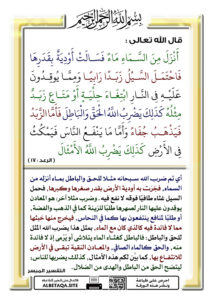 بِسْمِ اللَّهِ الرَّحْمَٰنِ الرَّحِيمِ
قال الله تعالى :
أَنْزَلَ مِنَ السَّمَاءِ مَاءً فَسَالَتْ أَوْدِيَةٌ بِقَدَرِهَا
فَاحْتَمَلَ السَّيْلُ زَبَدًا رَابِيًا وَمِمَّا يُوقِدُونَ
عَلَيْهِ فِي النَّارِ ابْتِغَاءَ حِلْيَةٍ أَوْ مَتَاعٍ زَبَدٌ
مِثْلُهُ كَذَلِكَ يَضْرِبُ اللَّهُ الْحَقَّ وَالْبَاطِلَ فَأَمَّا الزَّبَدُ
فَيَذْهَبُ جُفَاءً وَأَمَّا مَا يَنْفَعُ النَّاسَ فَيَمْكُثُ
فِي الْأَرْضِ كَذَلِكَ يَضْرِبُ اللَّهُ الْأَمْثَالَ
(الرعد : ١٧)
أي ثم ضرب الله سبحانه مثلا للحق والباطل بماء أنزله من
السماء، فجَرَت به أودية الأرض بقدر صغرها وكبرها، فحمل
السيل غثاء طافيًا فوقه لا نفع فيه. وضرب مثلا آخر: هو المعادن
يوقدون عليها النار لصهرها طلبًا للزينة كما في الذهب والفضة،
أو طلبًا لمنافع ينتفعون بها كما في النحاس، فيخرج منها خبثها
مما لا فائدة فيه كالذي كان مع الماء، بمثل هذا يضرب الله المثل
للحق والباطل: فالباطل كغثاء الماء يتلاشى أو يُرمى إذ لا فائدة
منه، والحق كالماء الصافي، والمعادن النقية تبقى في الأرض
للانتفاع بها، كما بيَّن لكم هذه الأمثال، كذلك يضربها للناس؛
ليتضح الحق من الباطل والهدى من الضلال.
التفسير الميسر
ALBETAQA.SITE